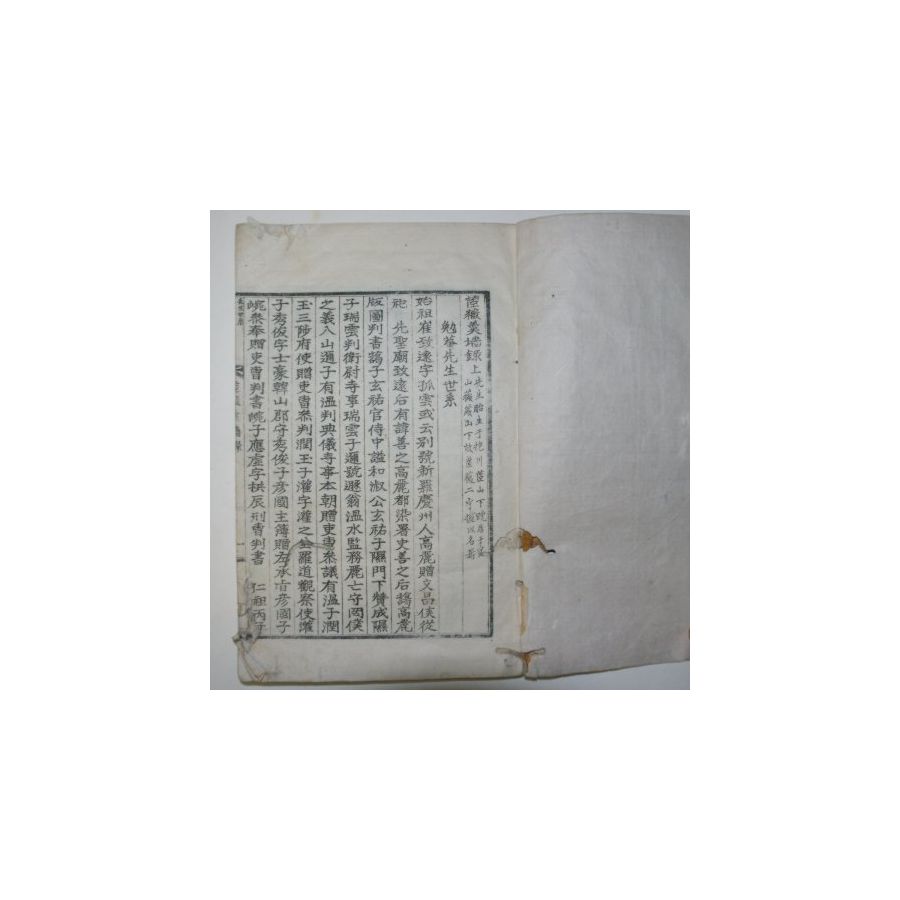 茝薇羹墻錄上
先生胎生于抱川茝山下
山薇山下故茝薇二字
勉菴先生世系
始祖崔致遠字孤雲或云別號新羅慶州人高麗贈文昌侯從
祀先聖廟致遠后有諱善之高麗都染署史善之后鄗高麗
版圖判書鄗子玄祐官侍中謚和淑公玄祐子隰門下贊成隰
子瑞雲判衛尉寺事瑞雲子邇號遯翁溫水監務麗亡守罔僕
之義入山邇子有溫判典儀寺事本朝贈吏曹參議有溫子潤
玉三陟府使贈吏曹參判潤玉子灌字灌之全羅道觀察使灌
子秀俊字士豪韓山郡守秀俊子彦國主簿贈左承旨彦國子
參奉贈吏曹判書子應虛字拱辰刑曹判書 仁祖丙子